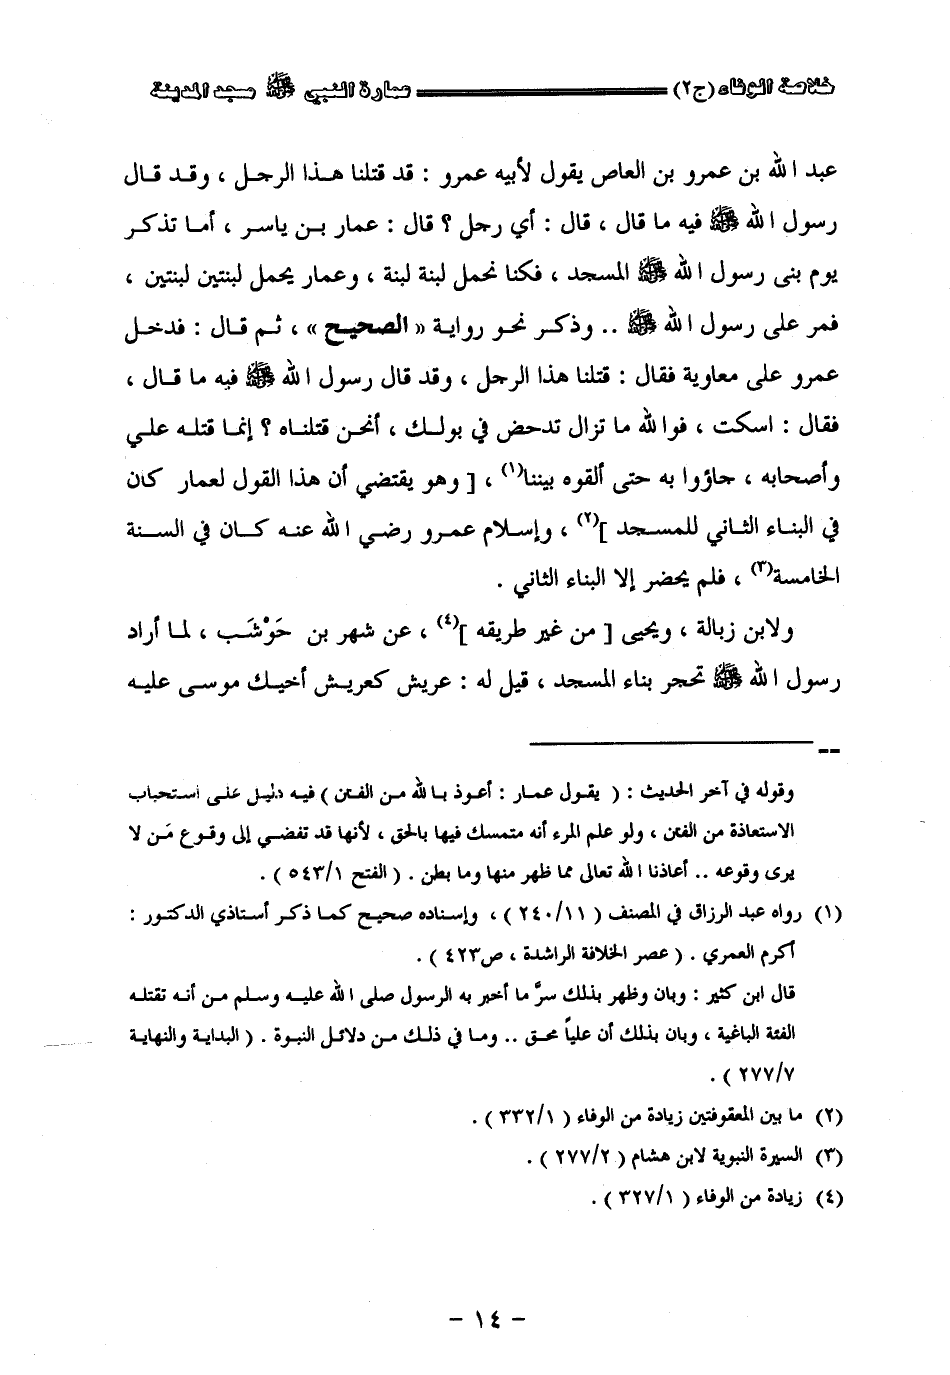 خلاصة الوفاء (ج٢) عمارة النبي ﷺ مسجد المدينة
عبد الله بن عمرو بن العاص يقول لأبيه عمرو : قد قتلنا هذا الرجل ، وقد قال
رسول الله ﷺ فيه ما قال ، قال : أي رجل ؟ قال : عمار بن ياسر ، أما تذكر
يوم بنى رسول الله ﷺ المسجد ، فكنا نحمل لبنة لبنة ، وعمار يحمل لبنتين لبنتين ،
فمر على رسول الله ﷺ .. وذكر نحو رواية « الصحيح » ، ثم قال : فدخل
عمرو على معاوية فقال : قتلنا هذا الرجل ، وقد قال رسول الله ﷺ فيه ما قال ،
فقال : اسكت ، فوالله ما تزال تدحض في بولك ، أنحن قتلناه ؟ إنما قتله علي
وأصحابه ، جاؤوا به حتى ألقوه بيننا(١) ، [ وهو يقتضي أن هذا القول لعمار كان
في البناء الثاني للمسجد ](٢) ، وإسلام عمرو رضي الله عنه كان في السنة
الخامسة(٣) ، فلم يحضر إلا البناء الثاني .
ولابن زبالة ، ويحيى [ من غير طريقه ](٤) ، عن شهر بن حَوْشَب ، لما أراد
رسول الله ﷺ تحجر بناء المسجد ، قيل له : عريش كعريش أخيك موسى عليه
--
وقوله في آخر الحديث : ( يقول عمار : أعوذ بالله من الفتن ) فيه دليل على استحباب
الاستعاذة من الفتن ، ولو علم المرء أنه متمسك فيها بالحق ، لأنها قد تفضي إلى وقوع مَن لا
يرى وقوعه .. أعاذنا الله تعالى مما ظهر منها وما بطن . ( الفتح ٥٤٣/١ ) .
(١) رواه عبد الرزاق في المصنف ( ٢٤٠/١١ ) ، وإسناده صحيح كما ذكر أستاذي الدكتور :
أكرم العمري . ( عصر الخلافة الراشدة ، ص٤٢٣ ) .
قال ابن كثير : وبان وظهر بذلك سرَّ ما أخبر به الرسول صلى الله عليه وسلم من أنه تقتله
الفئة الباغية ، وبان بذلك أن علياً محق .. وما في ذلك من دلائل النبوة . ( البداية والنهاية
٢٧٧/٧ ) .
(٢) ما بين المعقوفتين زيادة من الوفاء ( ٣٣٢/١ ) .
(٣) السيرة النبوية لابن هشام ( ٢٧٧/٢ ) .
(٤) زيادة من الوفاء ( ٣٢٧/١ ) .
- ١٤ -